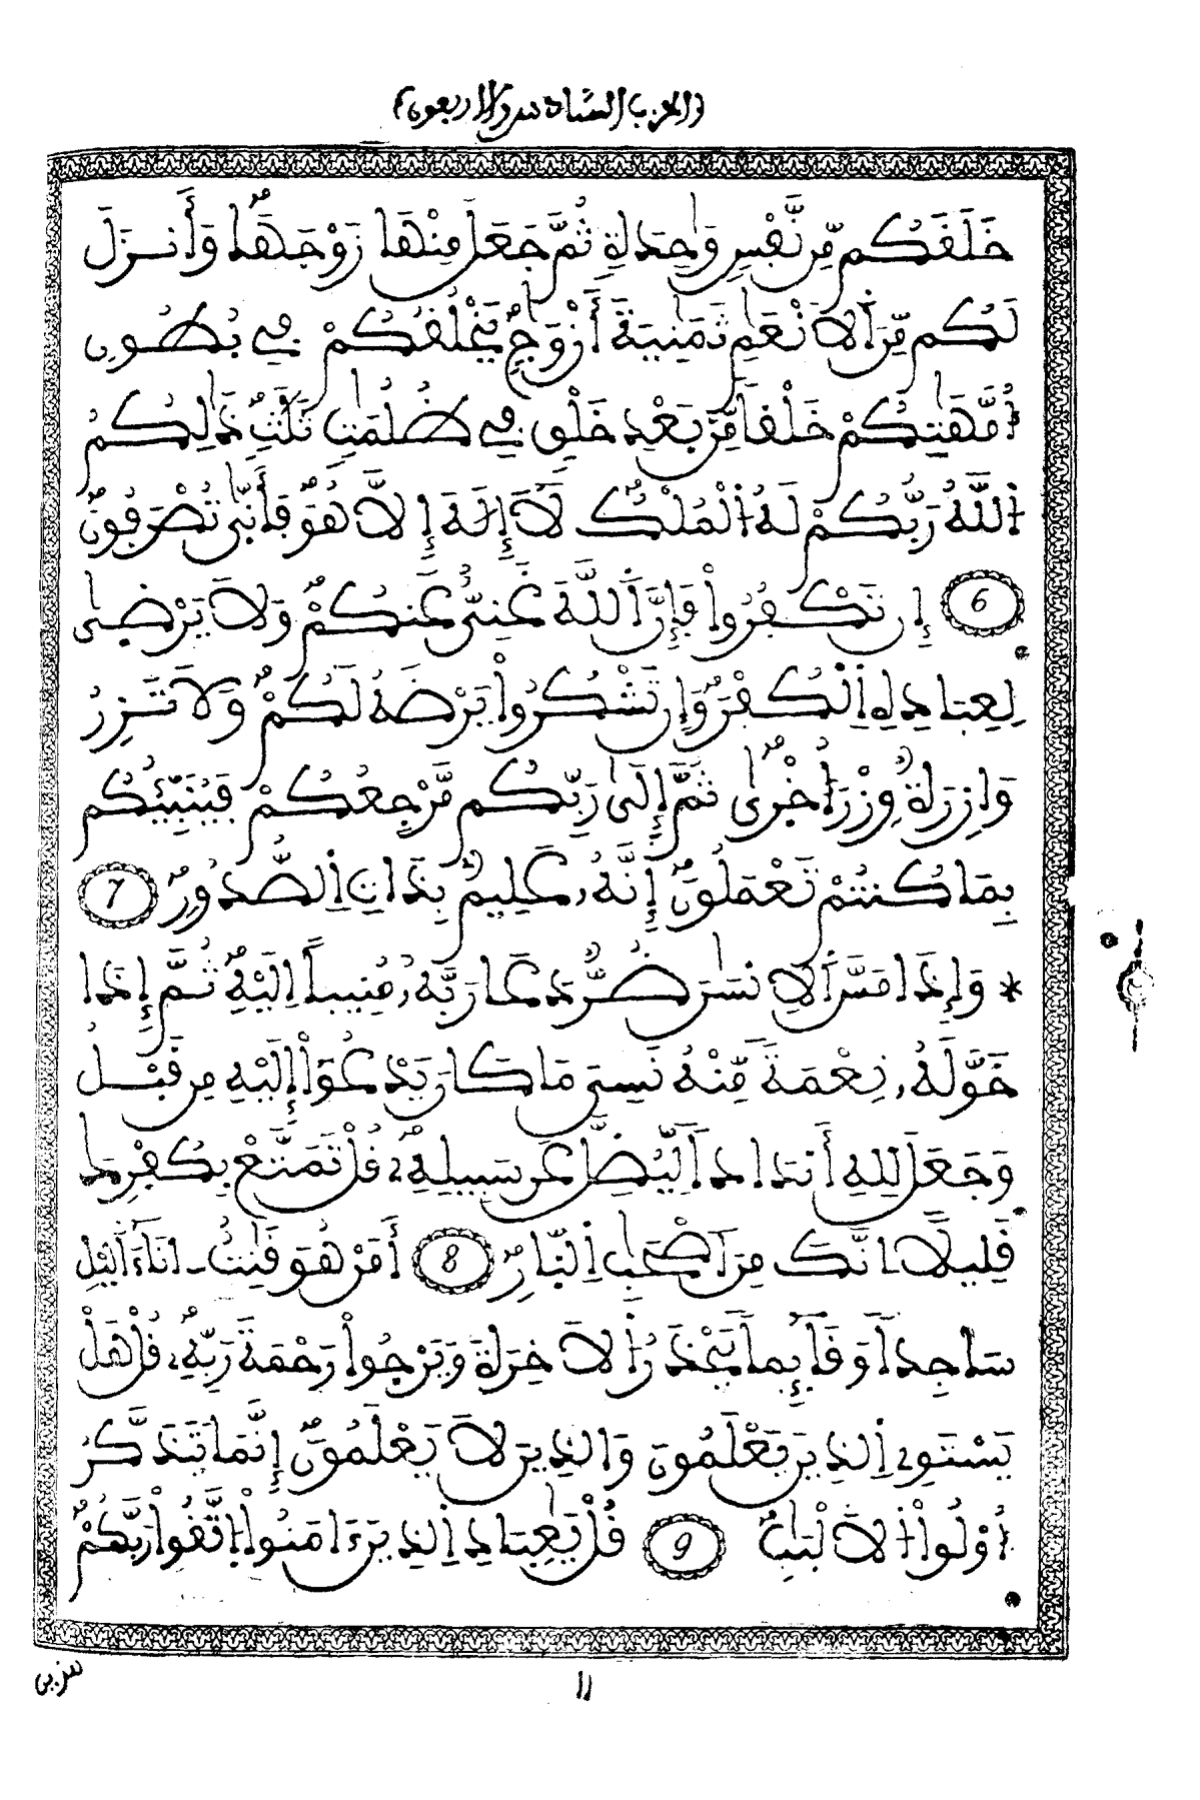 (الحزب السادس والاربعون)
خَلَقَكُم مِّن نَّفْسٖ وَٰحِدَةٖ ثُمَّ جَعَلَ مِنْهَا زَوْجَهَاۖ وَأَنزَلَ
لَكُم مِّنَ اَ۬لَانْعَٰمِ ثَمَٰنِيَةَ أَزْوَٰجٖ يَخْلُقُكُمْ فِے بُطُونِ
أُمَّهَٰتِكُمْ خَلْقاٗ مِّنۢ بَعْدِ خَلْقٖ فِے ظُلُمَٰتٖ ثَلَٰثٖۖ ذَٰلِكُمُ
اُ۬للَّهُ رَبُّكُمْ لَهُ اُ۬لْمُلْكُۖ لَآ إِلَٰهَ إِلَّا هُوَۖ فَأَنّ۪يٰ تُصْرَفُونَۖ
6 إِن تَكْفُرُواْ فَإِنَّ اَ۬للَّهَ غَنِيٌّ عَنكُمْۖ وَلَا يَرْضَىٰ
لِعِبَادِهِ اِ۬لْكُفْرَۖ وَإِن تَشْكُرُواْ يَرْضَهُ لَكُمْۖ وَلَا تَزِرُ
وَازِرَةٞ وِزْرَ أُخْر۪يٰۖ ثُمَّ إِلَىٰ رَبِّكُم مَّرْجِعُكُمْ فَيُنَبِّئُكُم
بِمَا كُنتُمْ تَعْمَلُونَۖ إِنَّهُۥ عَلِيمُۢ بِذَاتِ اِ۬لصُّدُورِۖ 7
* وَإِذَا مَسَّ اَ۬لِانسَٰنَ ضُرّٞ دَعَا رَبَّهُۥ مُنِيباً اِلَيْهِۖ ثُمَّ إِذَا
خَوَّلَهُۥ نِعْمَةٗ مِّنْهُ نَسِيَ مَا كَانَ يَدْعُوٓاْ إِلَيْهِ مِن قَبْلُ
وَجَعَلَ لِلهِ أَندَاداٗ لِّيُضِلَّ عَن سَبِيلِهِۦۖ قُلْ تَمَتَّعْ بِكُفْرِكَ
قَلِيلاً اِنَّكَ مِنَ اَصْحَٰبِ اِ۬لنّ۪ارِۖ 8 أَمَنْ هُوَ قَٰنِتٌ اٰنَآءَ اَ۬ليْلِ
سَاجِداٗ وَقَآئِماٗ يَحْذَرُ اُ۬لَاخِرَةَ وَيَرْجُواْ رَحْمَةَ رَبِّهِۦۖ قُلْ هَلْ
يَسْتَوِے اِ۬لذِينَ يَعْلَمُونَ وَالذِينَ لَا يَعْلَمُونَۖ إِنَّمَا يَتَذَكَّرُ
أُوْلُواْ اُ۬لَالْبَٰبِۖ 9 قُلْ يَٰعِبَادِ اِ۬لذِينَ ءَامَنُواْ اُ۪تَّقُواْ رَبَّكُمْۖ
11